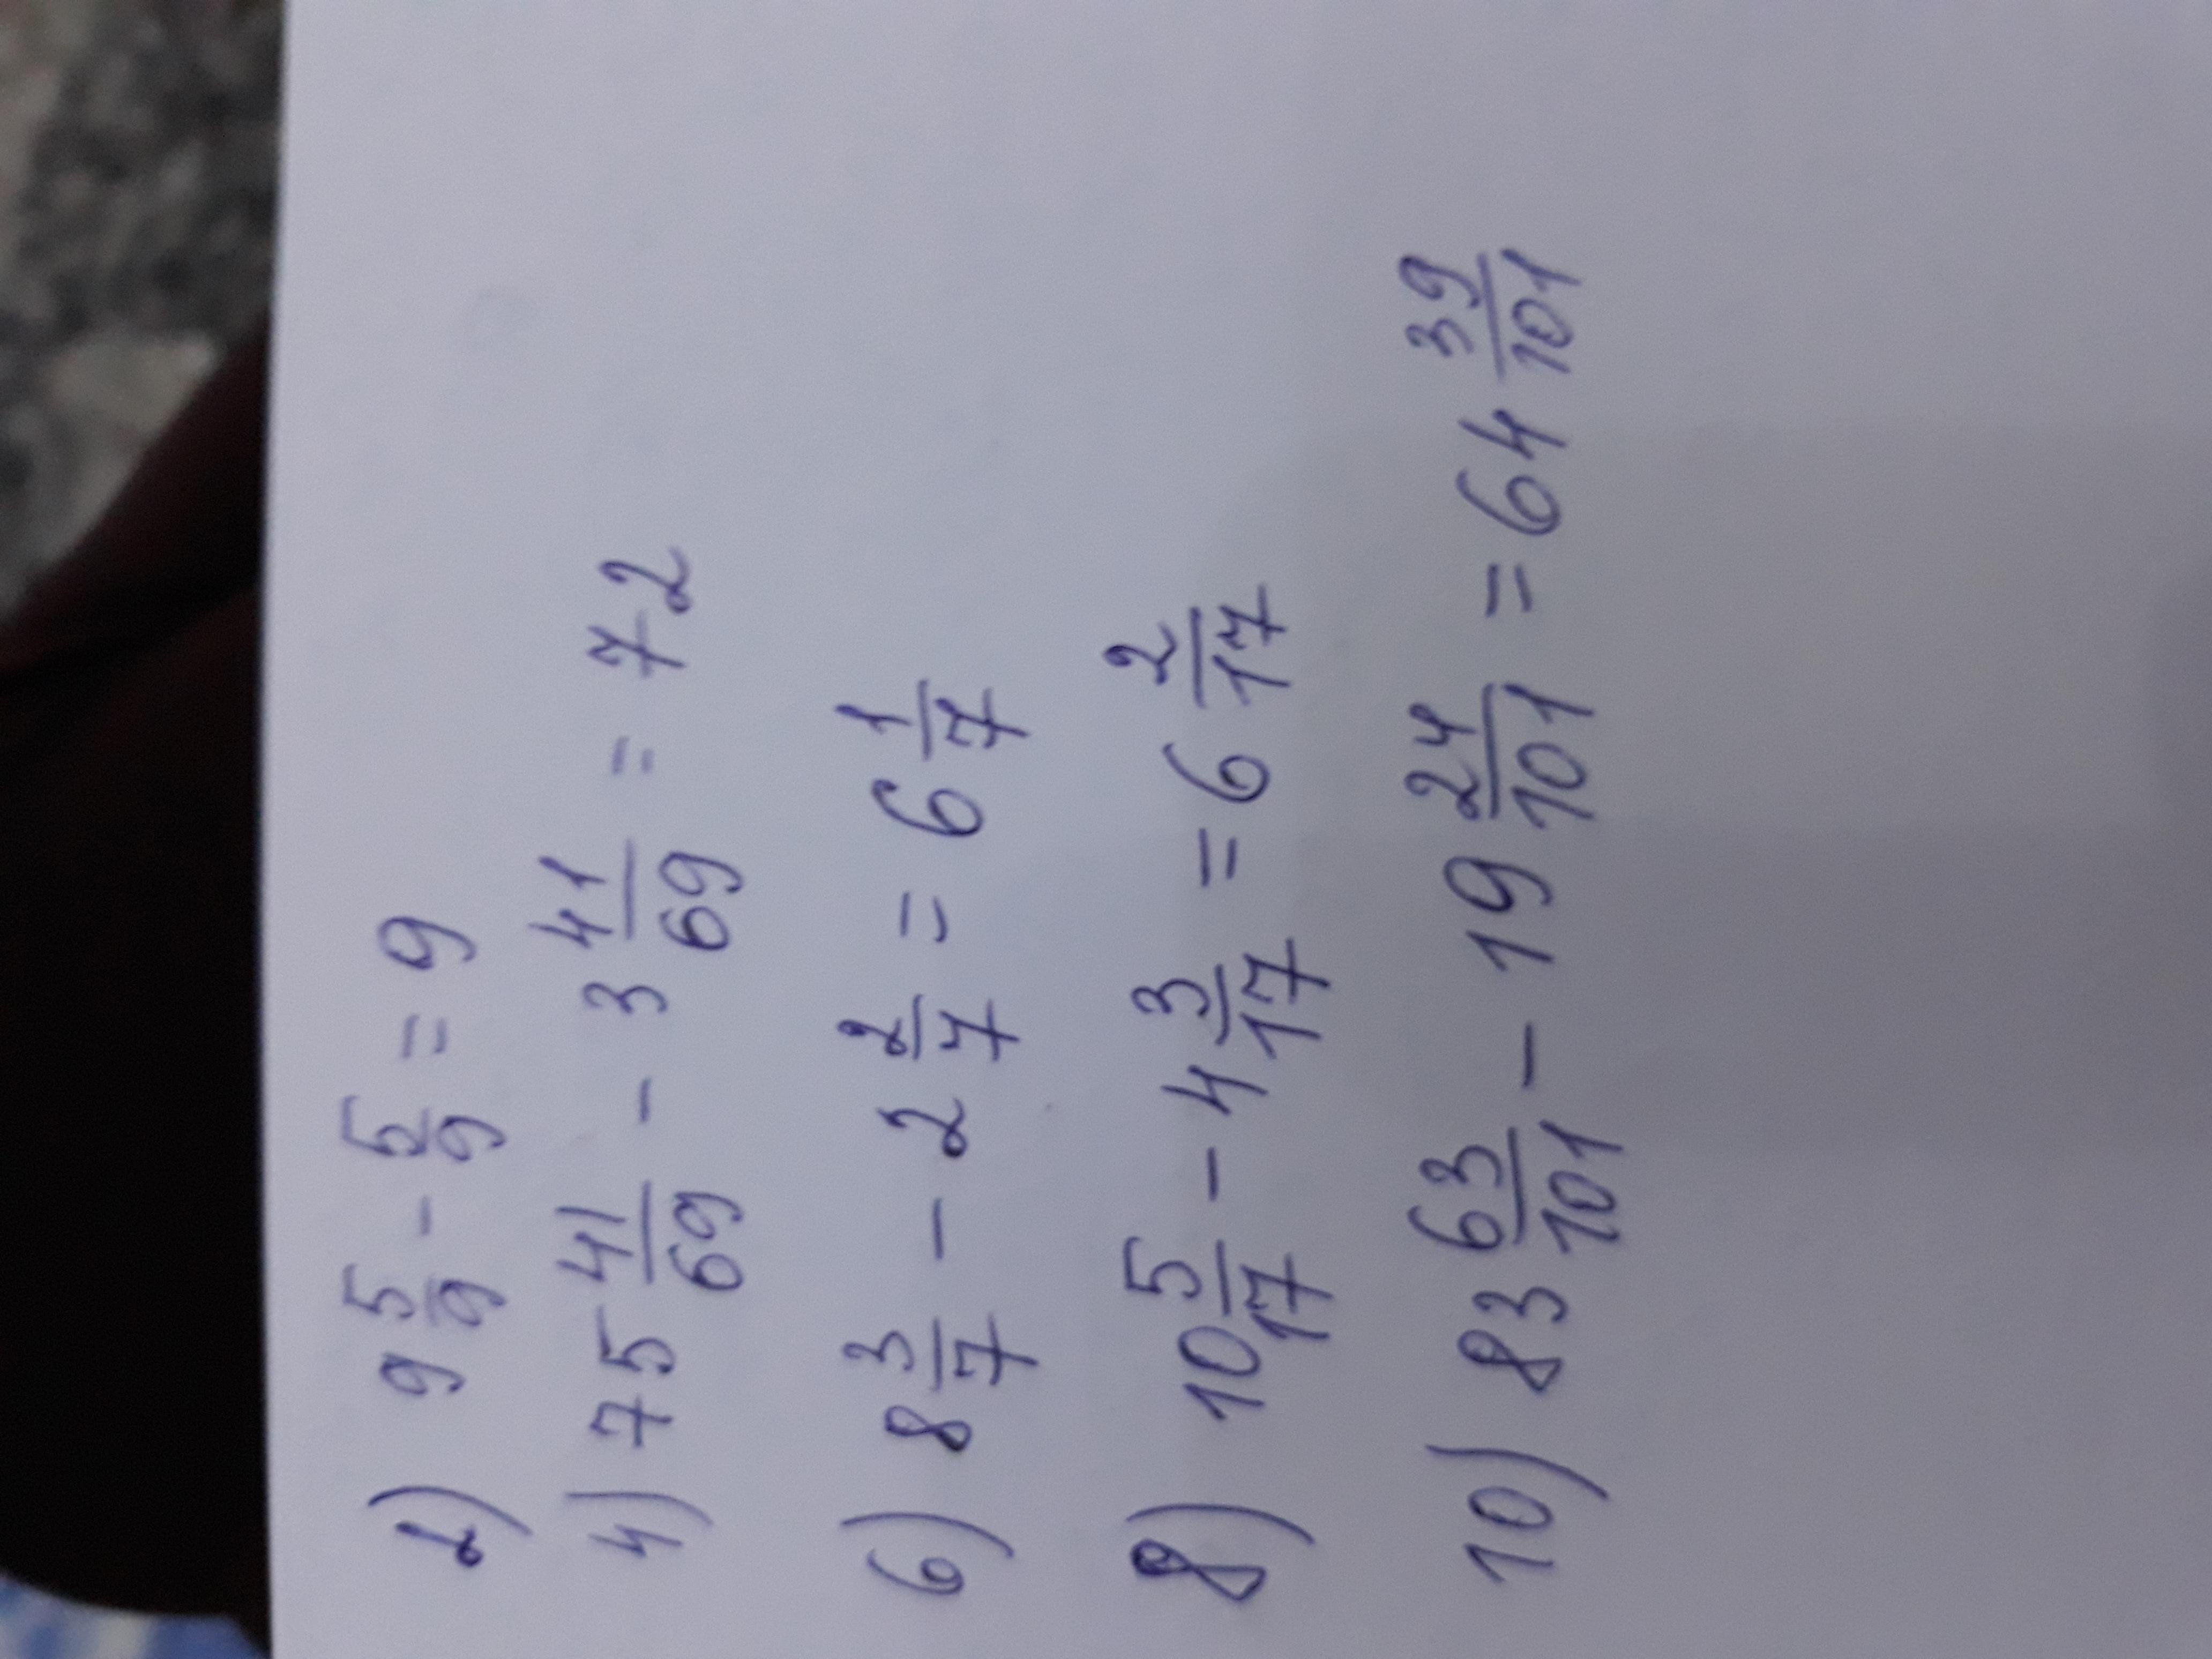 2) 9 5/9 - 5/9 = 9
4) 75 41/69 - 3 41/69 = 72
6) 8 3/7 - 2 2/7 = 6 1/7
8) 10 5/17 - 4 3/17 = 6 2/17
10) 83 63/101 - 19 24/101 = 64 39/101